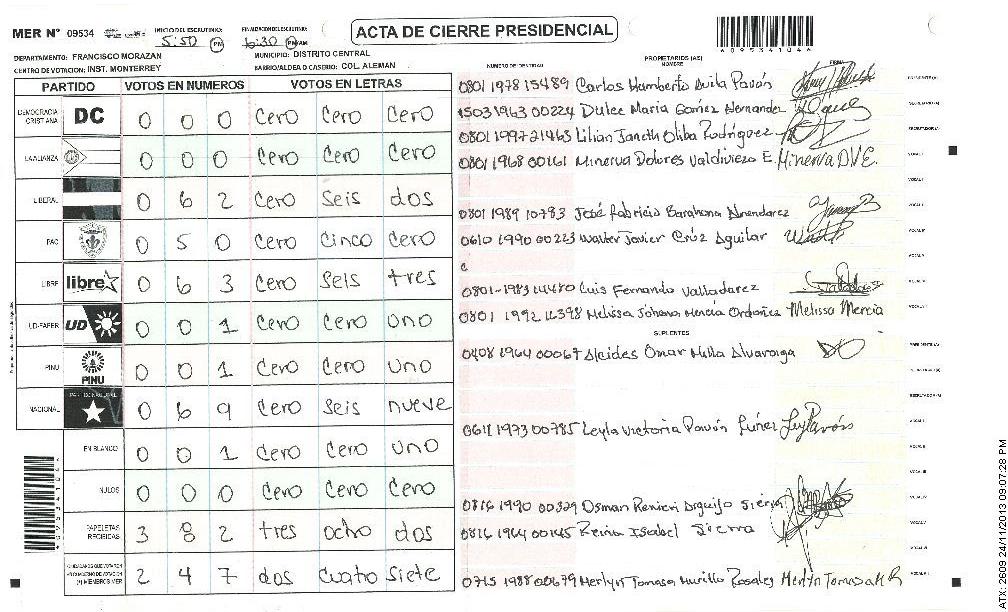 ACTA DE CIERRE PRESIDENCIAL
MER Nº 09534
INICIO DEL ESCRUTINIO: 5:50 PM
FINALIZACION DEL ESCRUTINIO: 6:30 PM/AM
DEPARTAMENTO: FRANCISCO MORAZAN
MUNICIPIO: DISTRITO CENTRAL
CENTRO DE VOTACION: INST. MONTERREY
BARRIO/ALDEA O CASERIO: COL. ALEMAN
PARTIDO VOTOS EN NUMEROS VOTOS EN LETRAS
DEMOCRACIA CRISTIANA DC 0 0 0 Cero Cero Cero
LA ALIANZA 0 0 0 Cero Cero Cero
LIBERAL 0 6 2 Cero Seis dos
PAC 0 5 0 Cero Cinco Cero
LIBRE libre 0 6 3 Cero Seis tres
UD-FAPER UD 0 0 1 Cero Cero uno
PINU PINU 0 0 1 Cero Cero uno
NACIONAL 0 6 9 Cero Seis nueve
EN BLANCO 0 0 1 Cero Cero uno
NULOS 0 0 0 Cero Cero Cero
PAPELETAS RECIBIDAS 3 8 2 tres ocho dos
2 4 7 dos Cuatro Siete
NUMERO DE IDENTIDAD PROPIETARIOS (AS) NOMBRE FIRMA
0801 1978 15489 Carlos Humberto Avila Pavón
1503 1963 00224 Dulce Maria Gomez Hernandez
0801 1997 21463 Lilian Janeth Oliba Rodriguez
0801 1968 00161 Minerva Dolores Valdiviezo E. Minerva D.V.E.
0801 1989 10783 José Fabricio Barahona
0610 1990 00223 Walter Javier Crúz Aguilar
0801-1983 14480 Luis Fernando Valladarez
0801 1992 14398 Melissa Johana Mencia Ordoñez Melissa Mencia
SUPLENTES
0408 1964 00067 Alcides Omar Milla Alvarenga
0611 1973 00785 Leyla Victoria Pavón Fúnez
0816 1990 00329 Osman
0816 1964 00145 Reina Isabel Sierra
0715 1988 00679 Merlyn Tomasa Murillo Rosales
ATX: 2609 24/11/2013 09:07:28 PM